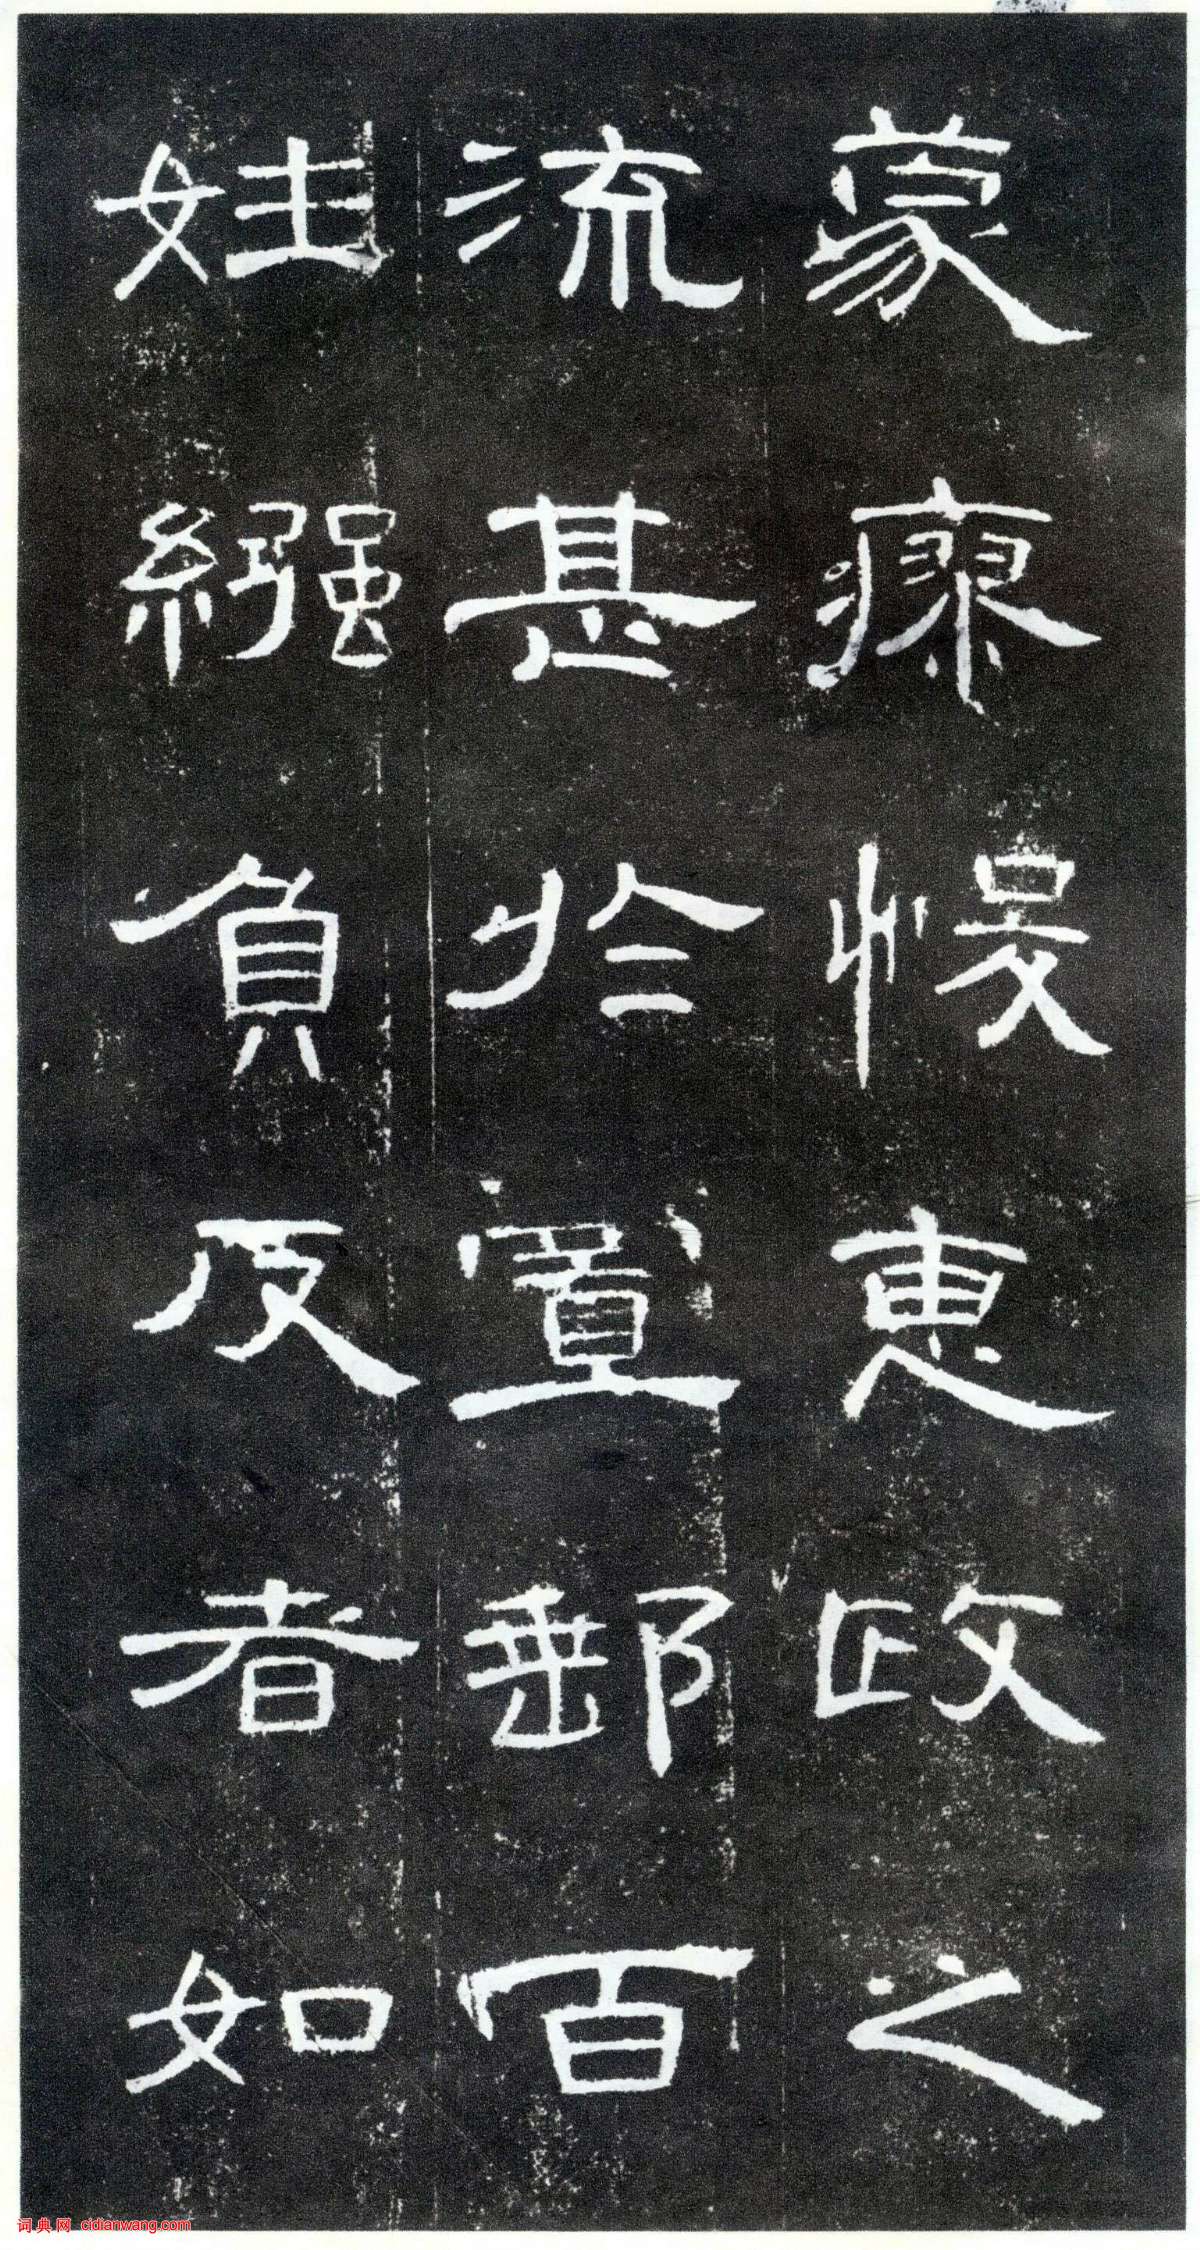 蒙瘳慢惠政之
流甚於置郵百
姓繈負反者如
词典网 cidianwang.com